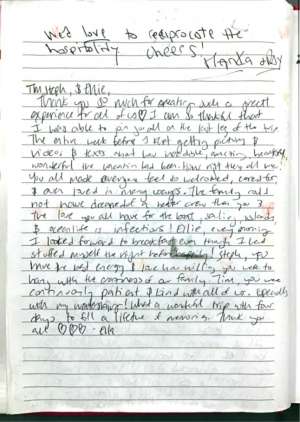 We'd love to reciprocate the
hospitality cheers!
Tim, Steph, & Ellie,
Thank you so much for creating such a great
experience for all of us♡ I am so thankful that
I was able to join you all on the last leg of the trip
The entire week before I kept getting pictures &
videos & texts about how incredible, amazing, beautiful,
wonderful the vacation had been. How right they all were
You all made everyone feel so welcomed, cared for,
& even loved in many ways. The family could
not have dreamed of a better crew than you 3
The love you all have for the boat, sailing, islands,
& ocean life is infectious! Ellie, every morning
I looked forward to breakfast even though I had
stuffed myself the night before. Steph, you
have the best energy & I love how willing you were to
hang with the craziness of our family. Tim, you were
continuously patient & kind with all of us, especially
with my What a wonderful trip with four
days to fill a lifetime of memories. Thank you
all ♡♡♡ -